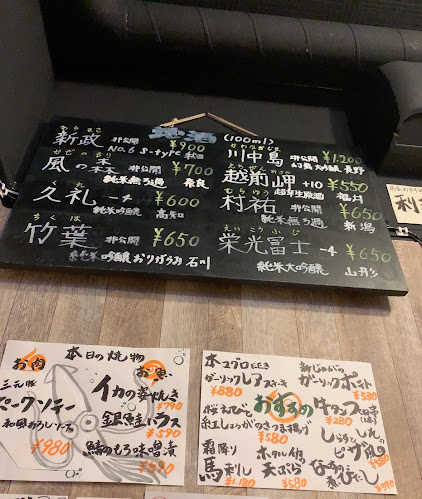 地酒 (100ml)
あらまさ
新政 非公開 ¥900
No.6 S-type 秋田
かぜのもり
風の森 非公開 ¥700
純米無ろ過 奈良
文礼 ¥600
純米吟醸 高知
ちくは
竹葉 非公開 ¥650
純米吟醸おりがらみ 石川
かわなかじま
川中島 非公開 ¥1,200
幻舞 大吟醸 長野
越前岬 +10 ¥550
超辛生原酒 福井
むらゆう
村祐 非公開 ¥650
純米無ろ過 新潟
えいこうふじ
栄光冨士 -4 ¥650
純米大吟醸 山形
本日の焼物
お肉
三元豚
ポークソテー
和風おろしソース
¥980
お魚
イカの姿焼き
¥790
銀鮭ハラス
¥590
鯖のもろ味噌漬
¥690
本マグロ
ガーリックレアステーキ
¥880
桜えびと
紅しょうがのさつま揚げ
¥580
霜降り
馬刺し
¥1,180
おすすめ
ホタルイカ
天ぷら
¥680
新じゃがの
ガーリックポテト
¥580
牛タン
¥280
しらすと
ピザ風
¥580
なすの
煮びたし